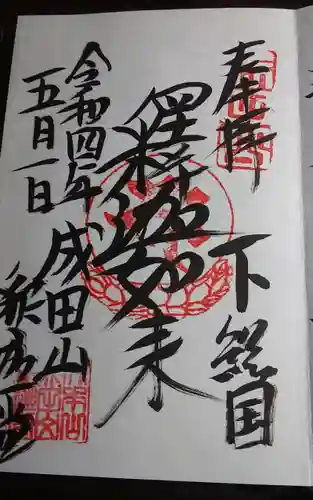 奉拝
下総国
釋迦如来
令和四年
五月一日
成田山
新勝寺